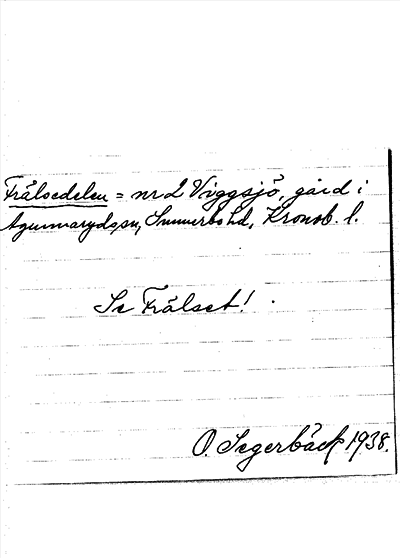 Frälsedelen = nr 2 Viggsjö, gård i
Agunnarydssn, Sunnerbo hd, Kronob. l.
Se Frälset!
O. Segerbäck 1938.